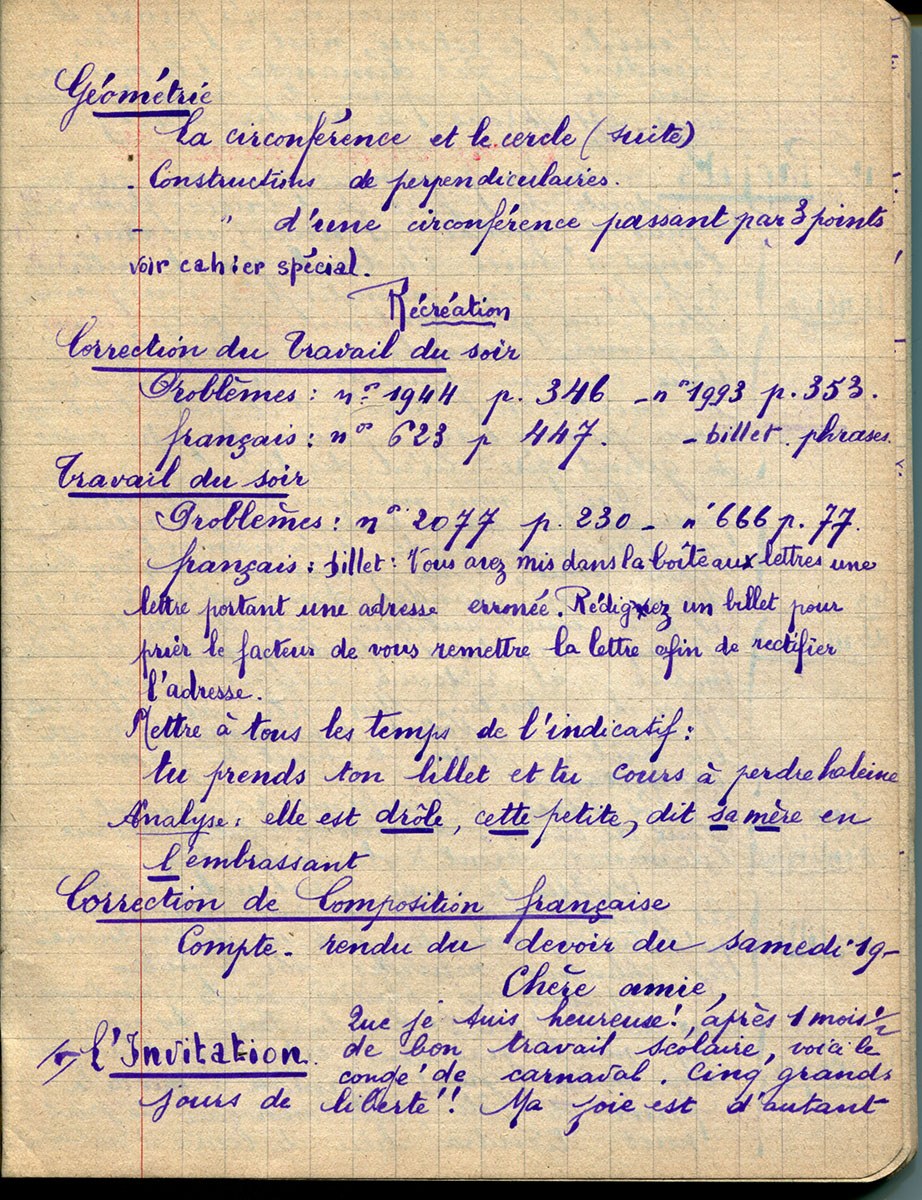 Géométrie
La circonférence et le cercle (suite)
- Constructions de perpendiculaires.
- " d'une circonférence passant par 3 points
voir cahier spécial.
Récréation
Correction du Travail du soir
Problèmes : nos 1944 p. 346 - no 1993 p. 353.
français : nos 623 p 447. - billet. phrases.
Travail du soir
Problèmes : no 2077 p. 230 - no 666 p. 77.
français : billet : Vous avez mis dans la boîte aux lettres une
lettre portant une adresse erronée. Rédigez un billet pour
prier le facteur de vous remettre la lettre afin de rectifier
l'adresse.
Mettre à tous les temps de l'indicatif :
tu prends ton billet et tu cours à perdre haleine
Analyse : elle est drôle, cette petite, dit sa mère en
l'embrassant
Correction de Composition française
Compte-rendu du devoir du samedi 19-
Chère amie,
Que je suis heureuse!, après 1 mois 1/2
L'Invitation. de bon travail scolaire, voici le
congé de carnaval. Cinq grands
jours de liberté!! Ma joie est d'autant